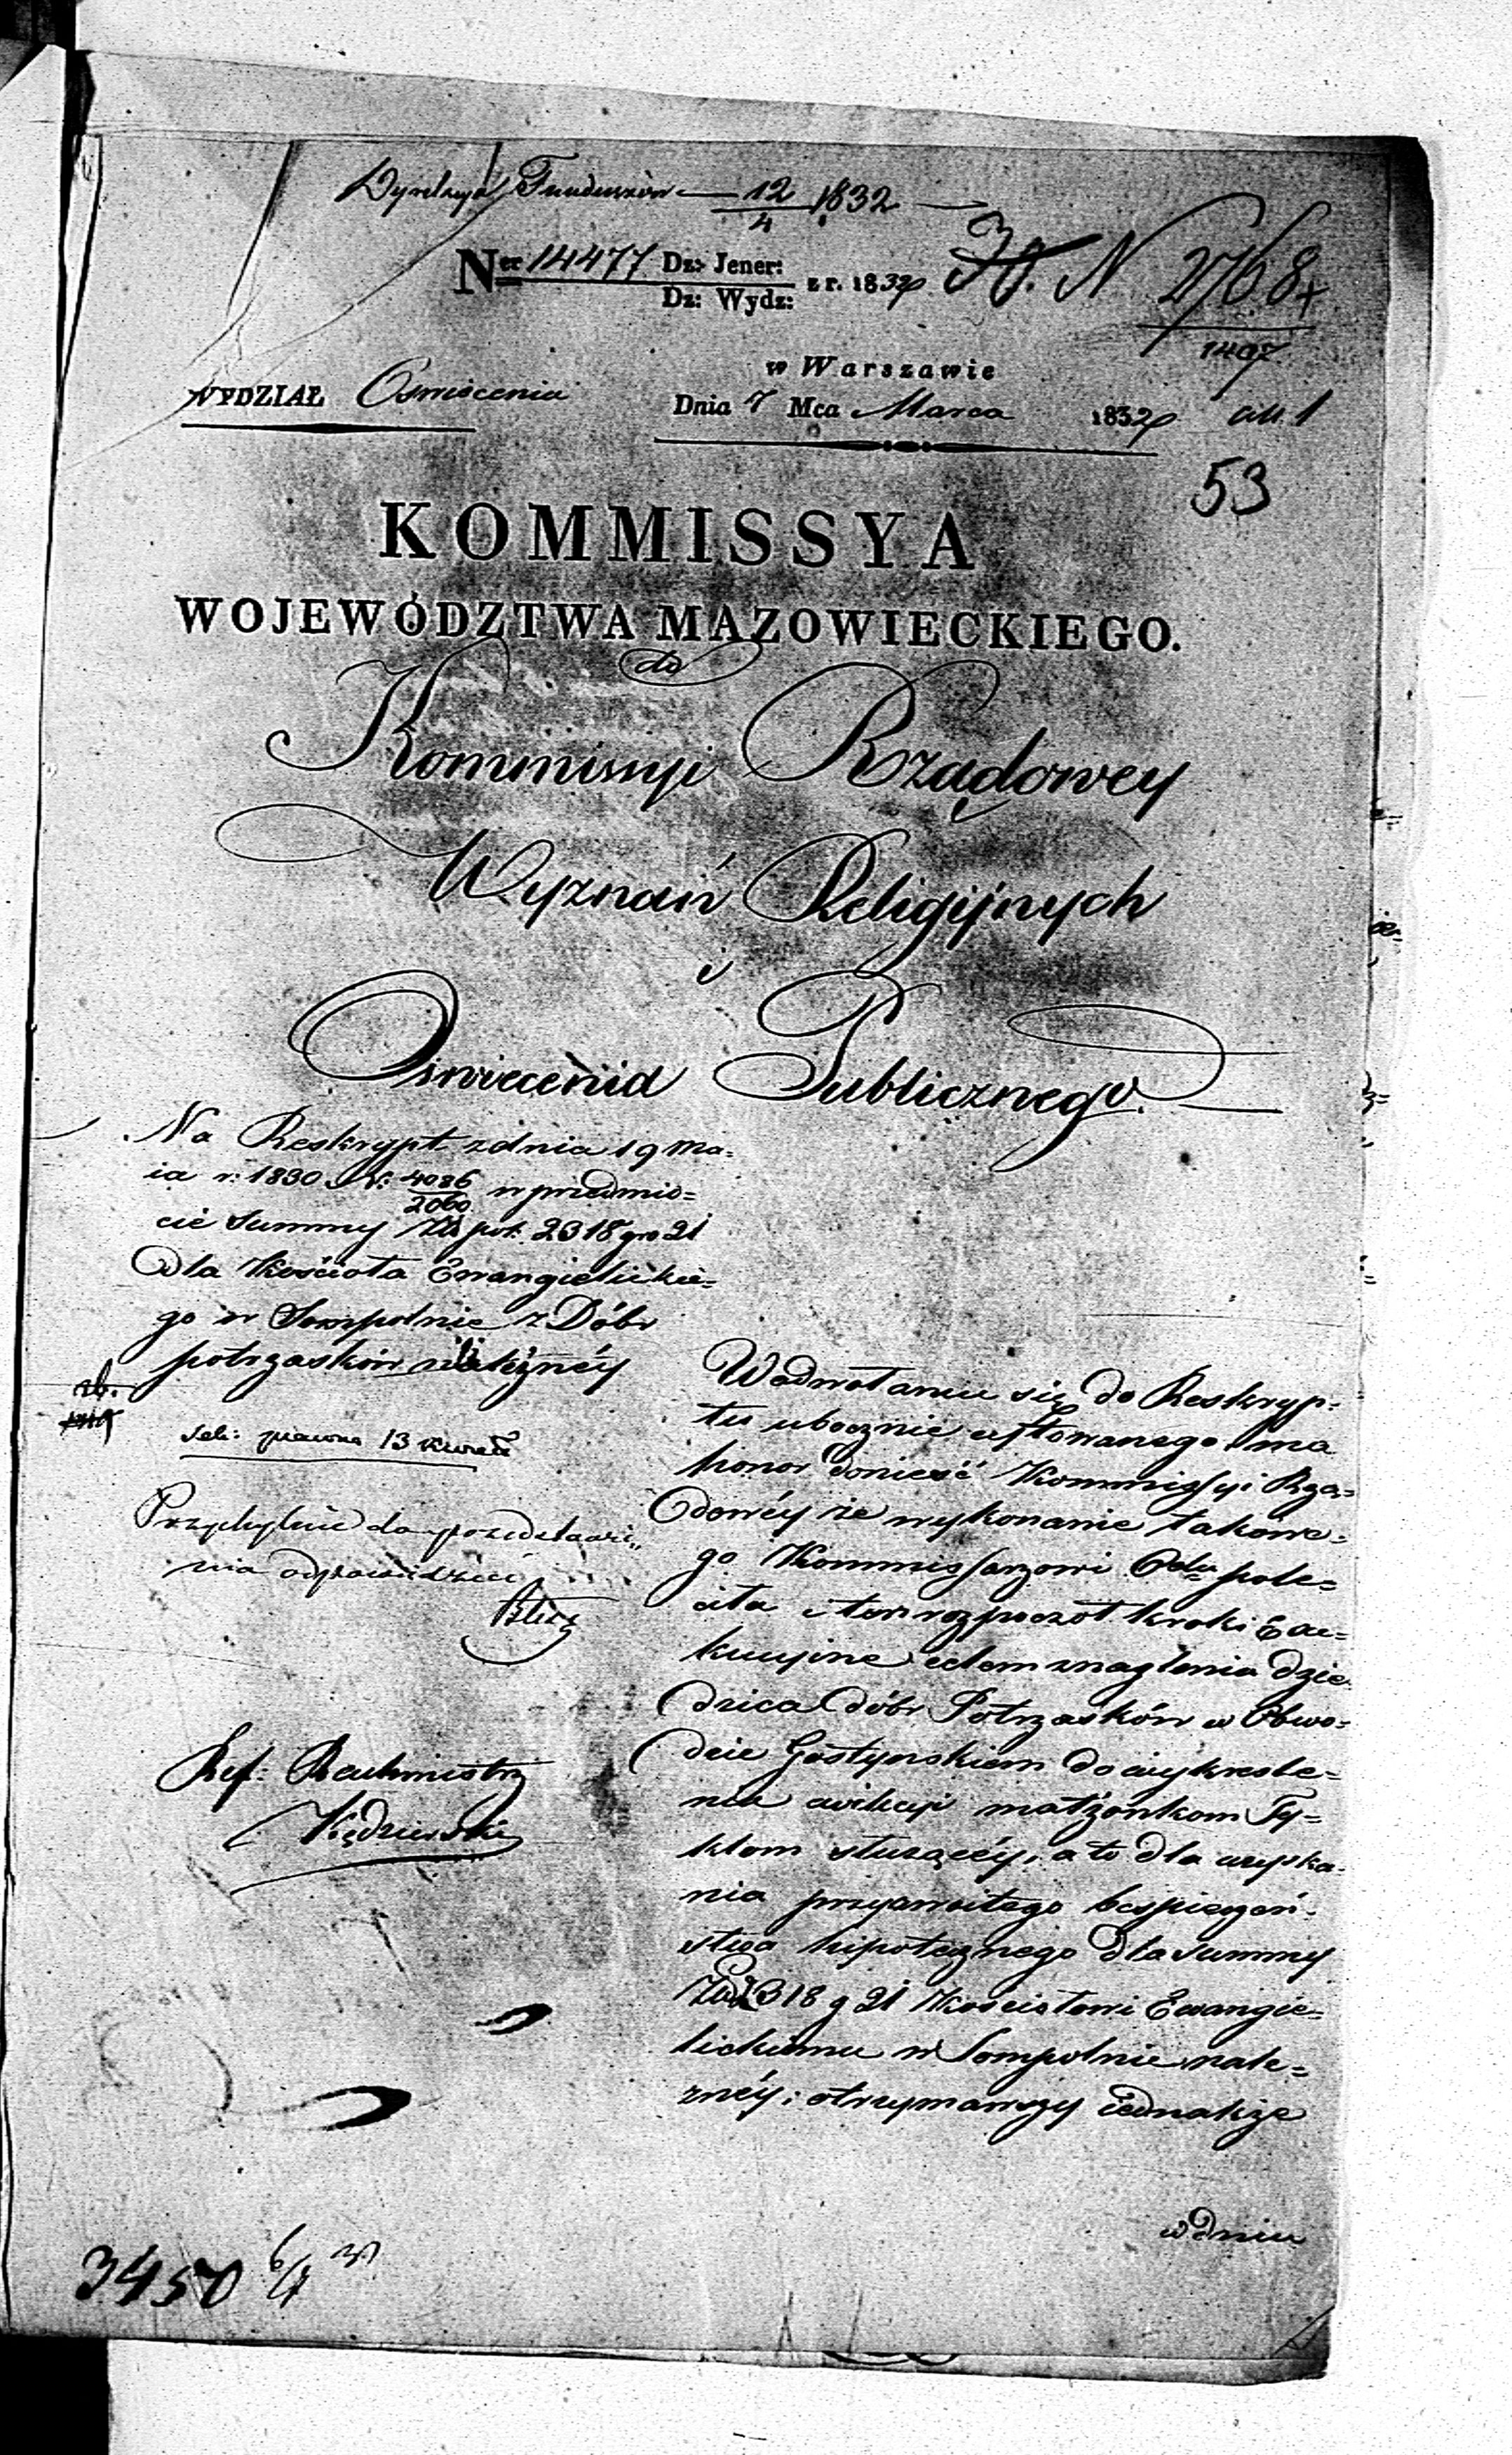 Dyrekcya Funduszów 12/4 1832
Ner 14477 Dz: Jener: z r. 1832 N 2768
Dz: Wydz:
1497
w Warszawie
WYDZIAŁ Oświecenia Dnia 7 Mca Marca 1832
53
KOMMISSYA
WOJEWÓDZTWA MAZOWIECKIEGO.
do
Kommissyi Rządowey
Wyznań Religijnych
i
Oswiecenia Publicznego.
Na Reskrypt z dnia 19 Ma=
ia r: 1830 N: 4086/2060 w przedmio=
cie Summy Złł pol: 2318 gro 21
dla Kościoła Ewangielickie=
go w Sompolnie z Dóbr
potrzasków należnéy
Sek: prawna 13 kwiet
Przychylnie do przedstawie„
nia odpowiedzieć
Ref: Rachmistrz
Kędzierski
W odwołaniu się do Reskryp=
tu ubocznie cytowanego ma
honor donieść Kommissyi Rzą=
dowéy że wykonanie takowe=
go Kommissarzowi Obdu pole=
ciła i ten rozpoczoł kroki Exe=
kucyine celem znaglenia dzie
dzica dóbr Potrzasków w Obwo=
dzie Gostynskiem do wykreśle=
nia ewikcyi małżonkom Ty=
klom służącéy, a to dla uzyska=
nia przyzwoitego bespieczeń=
stwa hipotecznego dla Summy
Złp 2318 g 21 Kościołowi Ewangie=
lickiemu w Sompolnie nale=
żnéy; otrzymawszy iednakże
w dniu
3450 6/4